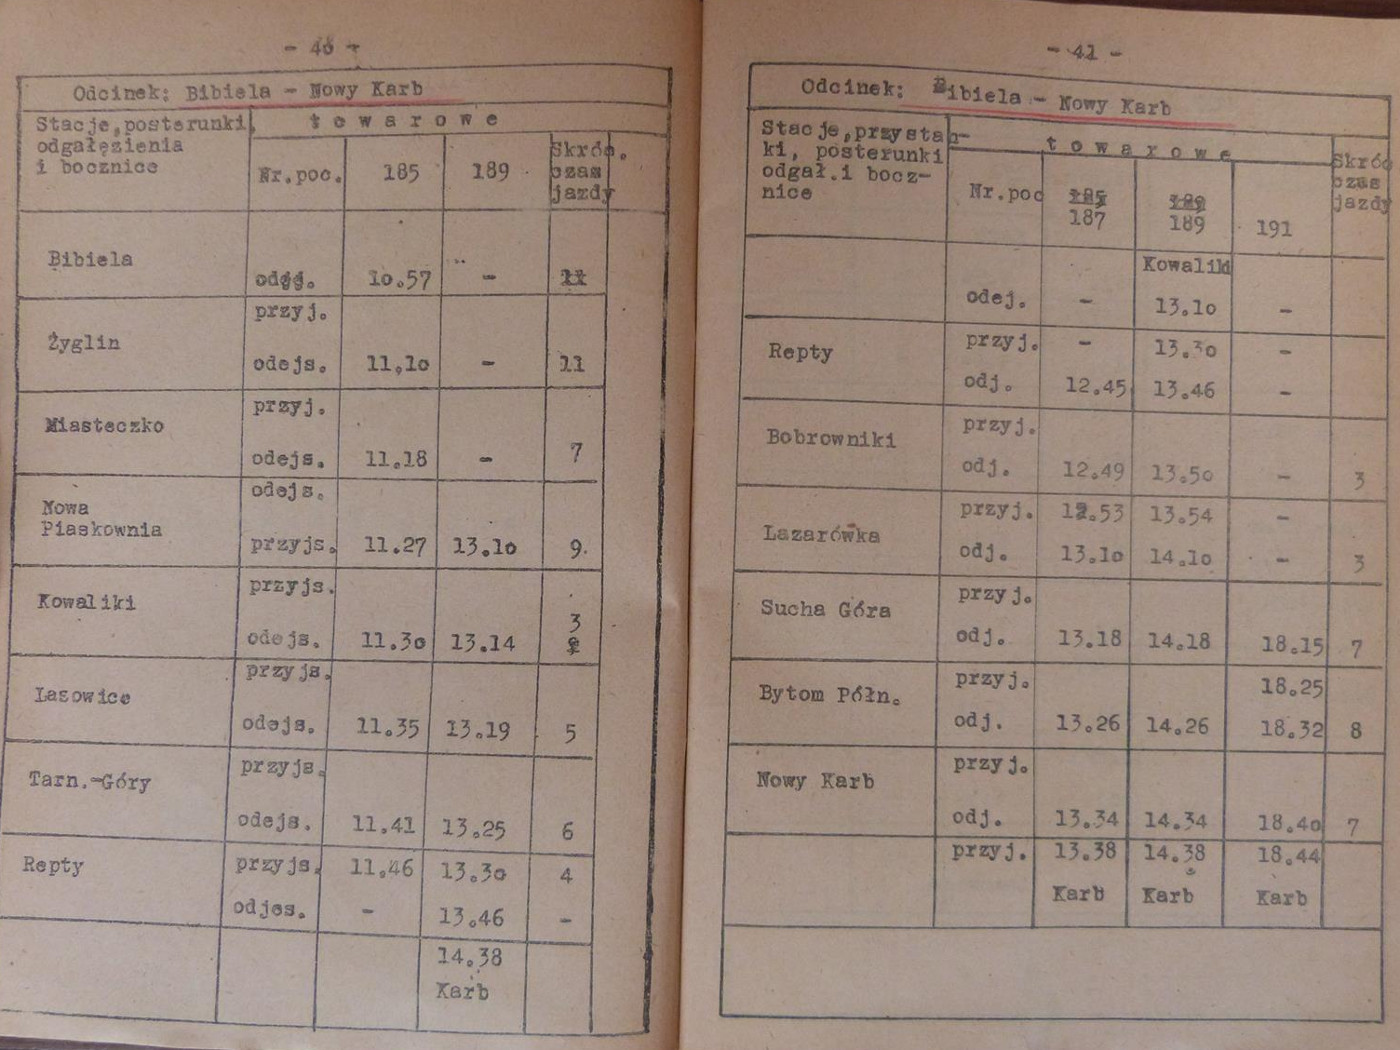 - 40 -
Odcinek: Bibiela - Nowy Karb
Stacje,posterunki, towarowe
odgałęzienia
i bocznice
Nr.poc. 185 189 Skróc. czas jazdy
Bibiela
odjj. 10.57 - 11
Żyglin
przyj.
odejs. 11.10 - 11
Miasteczko
przyj.
odejs. 11.18 - 7
Nowa
Piaskownia
odejs.
przyjs. 11.27 13.10 9.
Kowaliki
przyjs.
3
odejs. 11.30 13.14
Lasowice
przyjs.
odejs. 11.35 13.19 5
Tarn.-Góry
przyjs.
odejs. 11.41 13.25 6
Repty przyjs. 11.46 13.30 4
odjes. - 13.46 -
14.38
Karb
- 41 -
Odcinek: Bibiela - Nowy Karb
Stacje,przystan- towarowe
ki, posterunki
odgał.i bocz-
nice
Nr.poc 185 189
187 189 191
Skróc czas jazdy
Kowaliki
odej. - 13.10 -
Repty
przyj. - 13.30 -
odj. 12.45 13.46 -
Bobrowniki
przyj.
odj. 12.49 13.50 - 3
Lazarówka
przyj. 12.53 13.54 -
odj. 13.10 14.10 - 3
Sucha Góra
przyj.
odj. 13.18 14.18 18.15 7
Bytom Półn.
przyj. 18.25
odj. 13.26 14.26 18.32 8
Nowy Karb
przyj.
odj. 13.34 14.34 18.40 7
przyj. 13.38 14.38 18.44
Karb Karb Karb